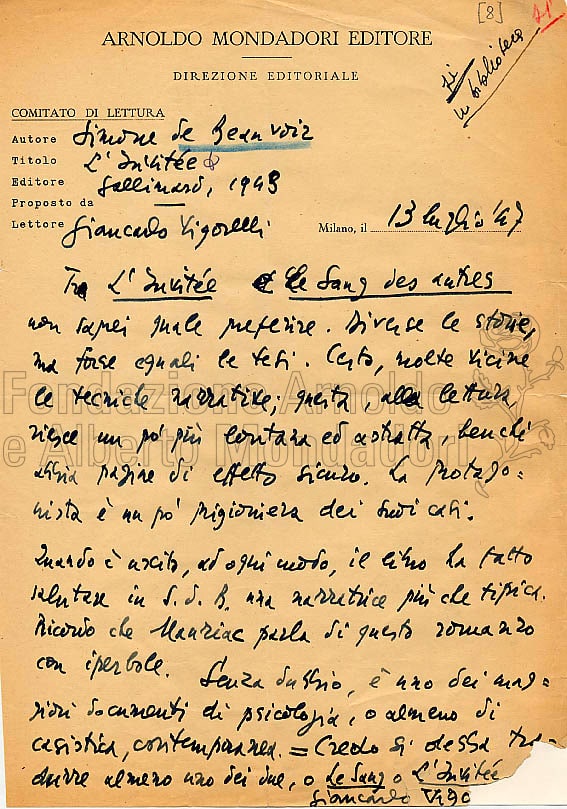 [8] 21
sì
in biblioteca
ARNOLDO MONDADORI EDITORE
DIREZIONE EDITORIALE
COMITATO DI LETTURA
Autore Simone de Beauvoir
Titolo L'Invitée
Editore Gallimard, 1943
Proposto da —
Lettore Giancarlo Vigorelli
Milano, il 13 luglio '47
Tra L'Invitée e Le Sang des autres
non saprei quale preferire. Diverse le storie,
ma forse eguali le tesi. Certo, molte vicine
le tecniche narrative; questa, alla lettura,
riesce un po' più lontana ed astratta, benchè
abbia pagine di effetto sicuro. La protago=
nista è un po' prigioniera dei suoi casi.
Quando è uscito, ad ogni modo, il libro ha fatto
salutare in S. d. B. una narratrice più che tipica.
Ricordo che Mauriac parla di questo romanzo
con iperbole. Senza dubbio, è uno dei mag=
giori documenti di psicologia, o almeno di
casistica, contemporanea. = Credo si debba tra=
durre almeno uno dei due, o Le Sang o L'Invitée
Giancarlo Vigo
Fondazione Arnoldo
e Alberto Mondadori